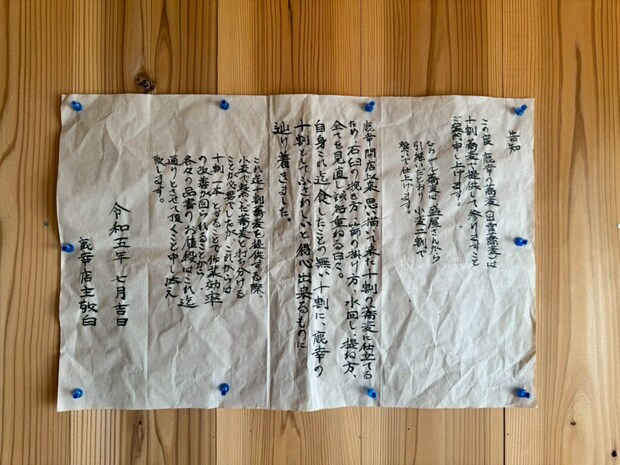 告知
この度 鹿幸の蕎麦(出雲蕎麦)は
十割蕎麦で提供して参りますこと
ご案内申し上げます。
ひやかけ蕎麦は 盛屋さんから
引継いだとおり 小麦二割で
繋いで仕上げます。
鹿幸開店以来、思い描いて来た十割の蕎麦に仕立てる
ため、石臼の挽き方、篩の掛け方、水回し・捏ね方、
全てを見直し試行重ねる日々。
自身これ迄食したことの無い十割に、鹿幸の
十割としてふさわしいと得心出来るものに
辿り着きました。
これ迄十割蕎麦を提供する際、
小麦で繋いだ蕎麦と打ち分ける
ことが必要でしたが、これからは
十割一本とすることで作業効率
の改善が図られることから
各々の品書のお値段はこれ迄
通りとさせて頂くことを申し添え
致します。
令和五年 七月吉日
鹿幸店主敬白